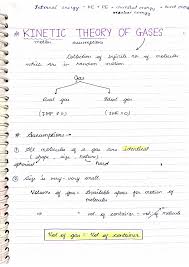 Internal energy = KE + PE
# KINETIC THEORY OF GASES
motion assumptions
Collection of no. of molecules
which are in random motion
Gas
Real gas Ideal gas
# Assumptions -
① All molecules of a gas are Identical
(shape, size, nature)
spherical hard
② Size is very-very small
Volume of gas = Available space for motion of
molecules
= vol. of container - vol. of molecules
Vol. of gas = Vol. of container